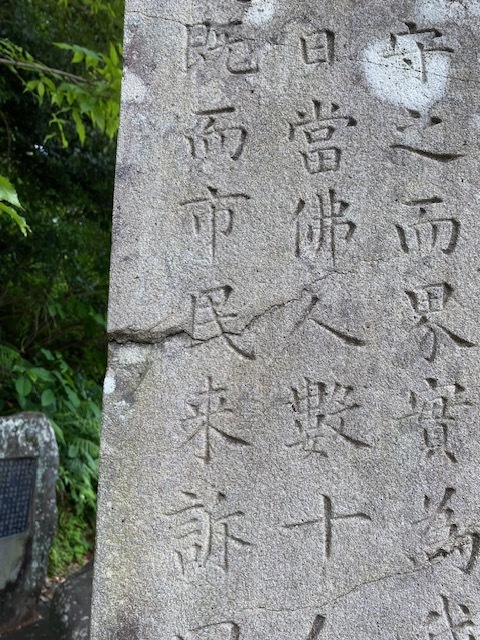 守之而界實為
日當佛人數十人
既而市民来訴